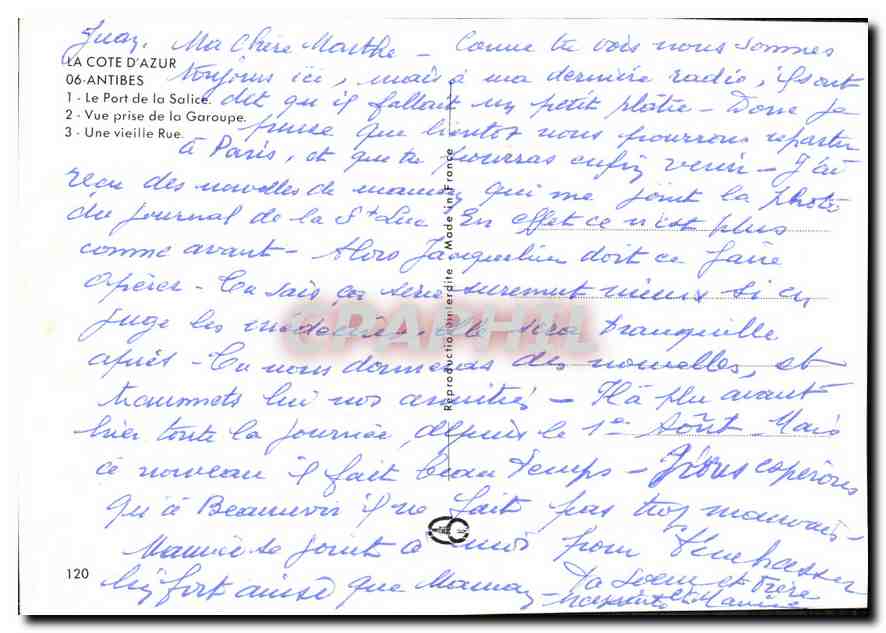 LA COTE D'AZUR
06-ANTIBES
1 - Le Port de la Salice.
2 - Vue prise de la Garoupe.
3 - Une vieille Rue.
Ma Chère Marthe - Comme tu vois nous sommes
toujours ici, mais à ma dernière radio, ils ont
dit qu'il fallait un petit plâtre - Donc je
pense que bientôt nous pourrons repartir
à Paris, et que tu pourras enfin venir - J'ai
reçu des nouvelles de maman qui me joint la photo
du journal de la St Luc En effet ce n'est plus
comme avant - Alors Jacqueline doit ce faire
opérer - Tu sais ça sera surement mieux si en
juge les médecins elle sera tranquille
après - Tu nous donneras des nouvelles, et
transmets lui nos amitiés - Il a plu avant
hier toute la journée, depuis le 1er Août Mais
ce nouveau il fait beau temps - Nous espérons
qu'à Beauvoir il ne fait pas trop mauvais -
Maurice se joint à moi pour t'embrasser
bien fort ainsi que Maman
Ta Soeur et Frère
et Maurice
Reproduction interdite Made in France
CPAPHIL
120